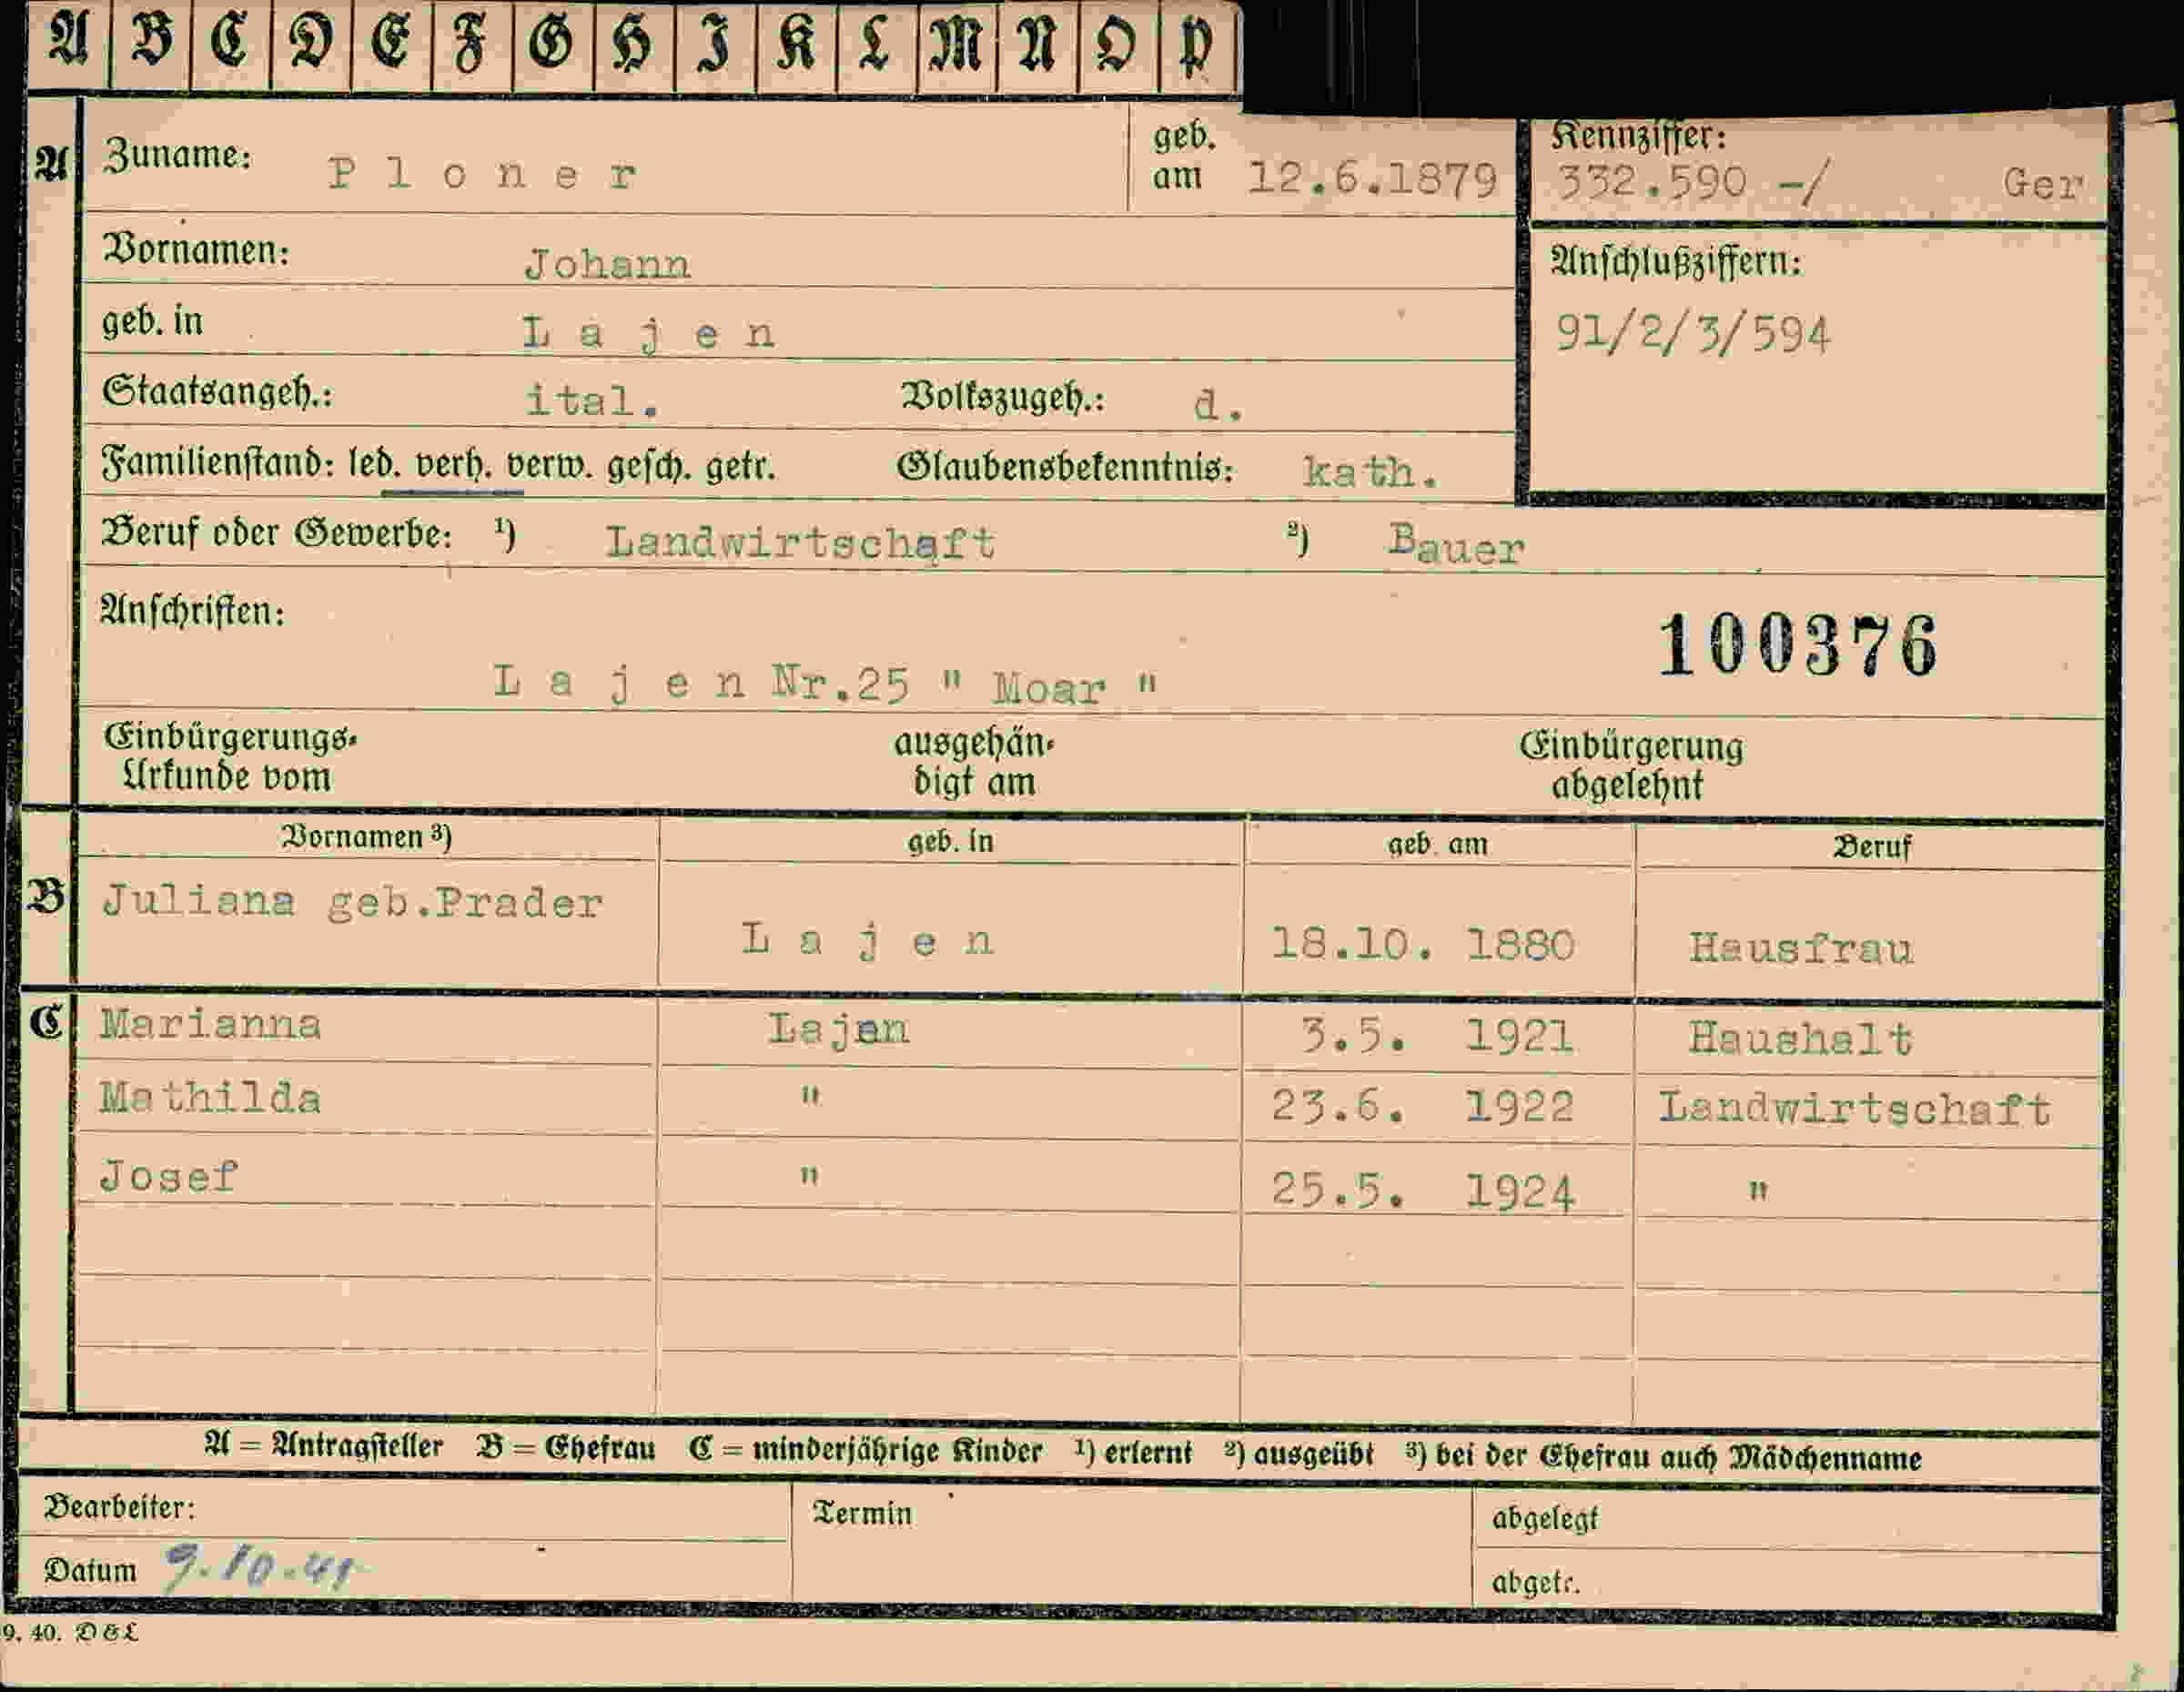 A B C D E F G H I K L M N O P
A Zuname: Ploner geb. am 12.6.1879
Kennziffer: 332.590 -/ Ger
Vornamen: Johann
Anschlußziffern:
geb. in Lajen
91/2/3/594
Staatsangeh.: ital. Volkszugeh.: d.
Familienstand: led. verh. verw. gesch. getr. Glaubensbekenntnis: kath.
Beruf oder Gewerbe: ¹) Landwirtschaft ²) Bauer
Anschriften:
100376
Lajen Nr.25 " Moar "
Einbürgerungs-Urkunde vom ausgehän-digt am Einbürgerung abgelehnt
Vornamen ³) geb. in geb. am Beruf
B Juliana geb.Prader Lajen 18.10. 1880 Hausfrau
C Marianna Lajen 3.5. 1921 Haushalt
Mathilda " 23.6. 1922 Landwirtschaft
Josef " 25.5. 1924 "
A = Antragsteller B = Ehefrau C = minderjährige Kinder ¹) erlernt ²) ausgeübt ³) bei der Ehefrau auch Mädchenname
Bearbeiter: Termin abgelegt
Datum 9.10.41 abgetr.
9. 40. D&L